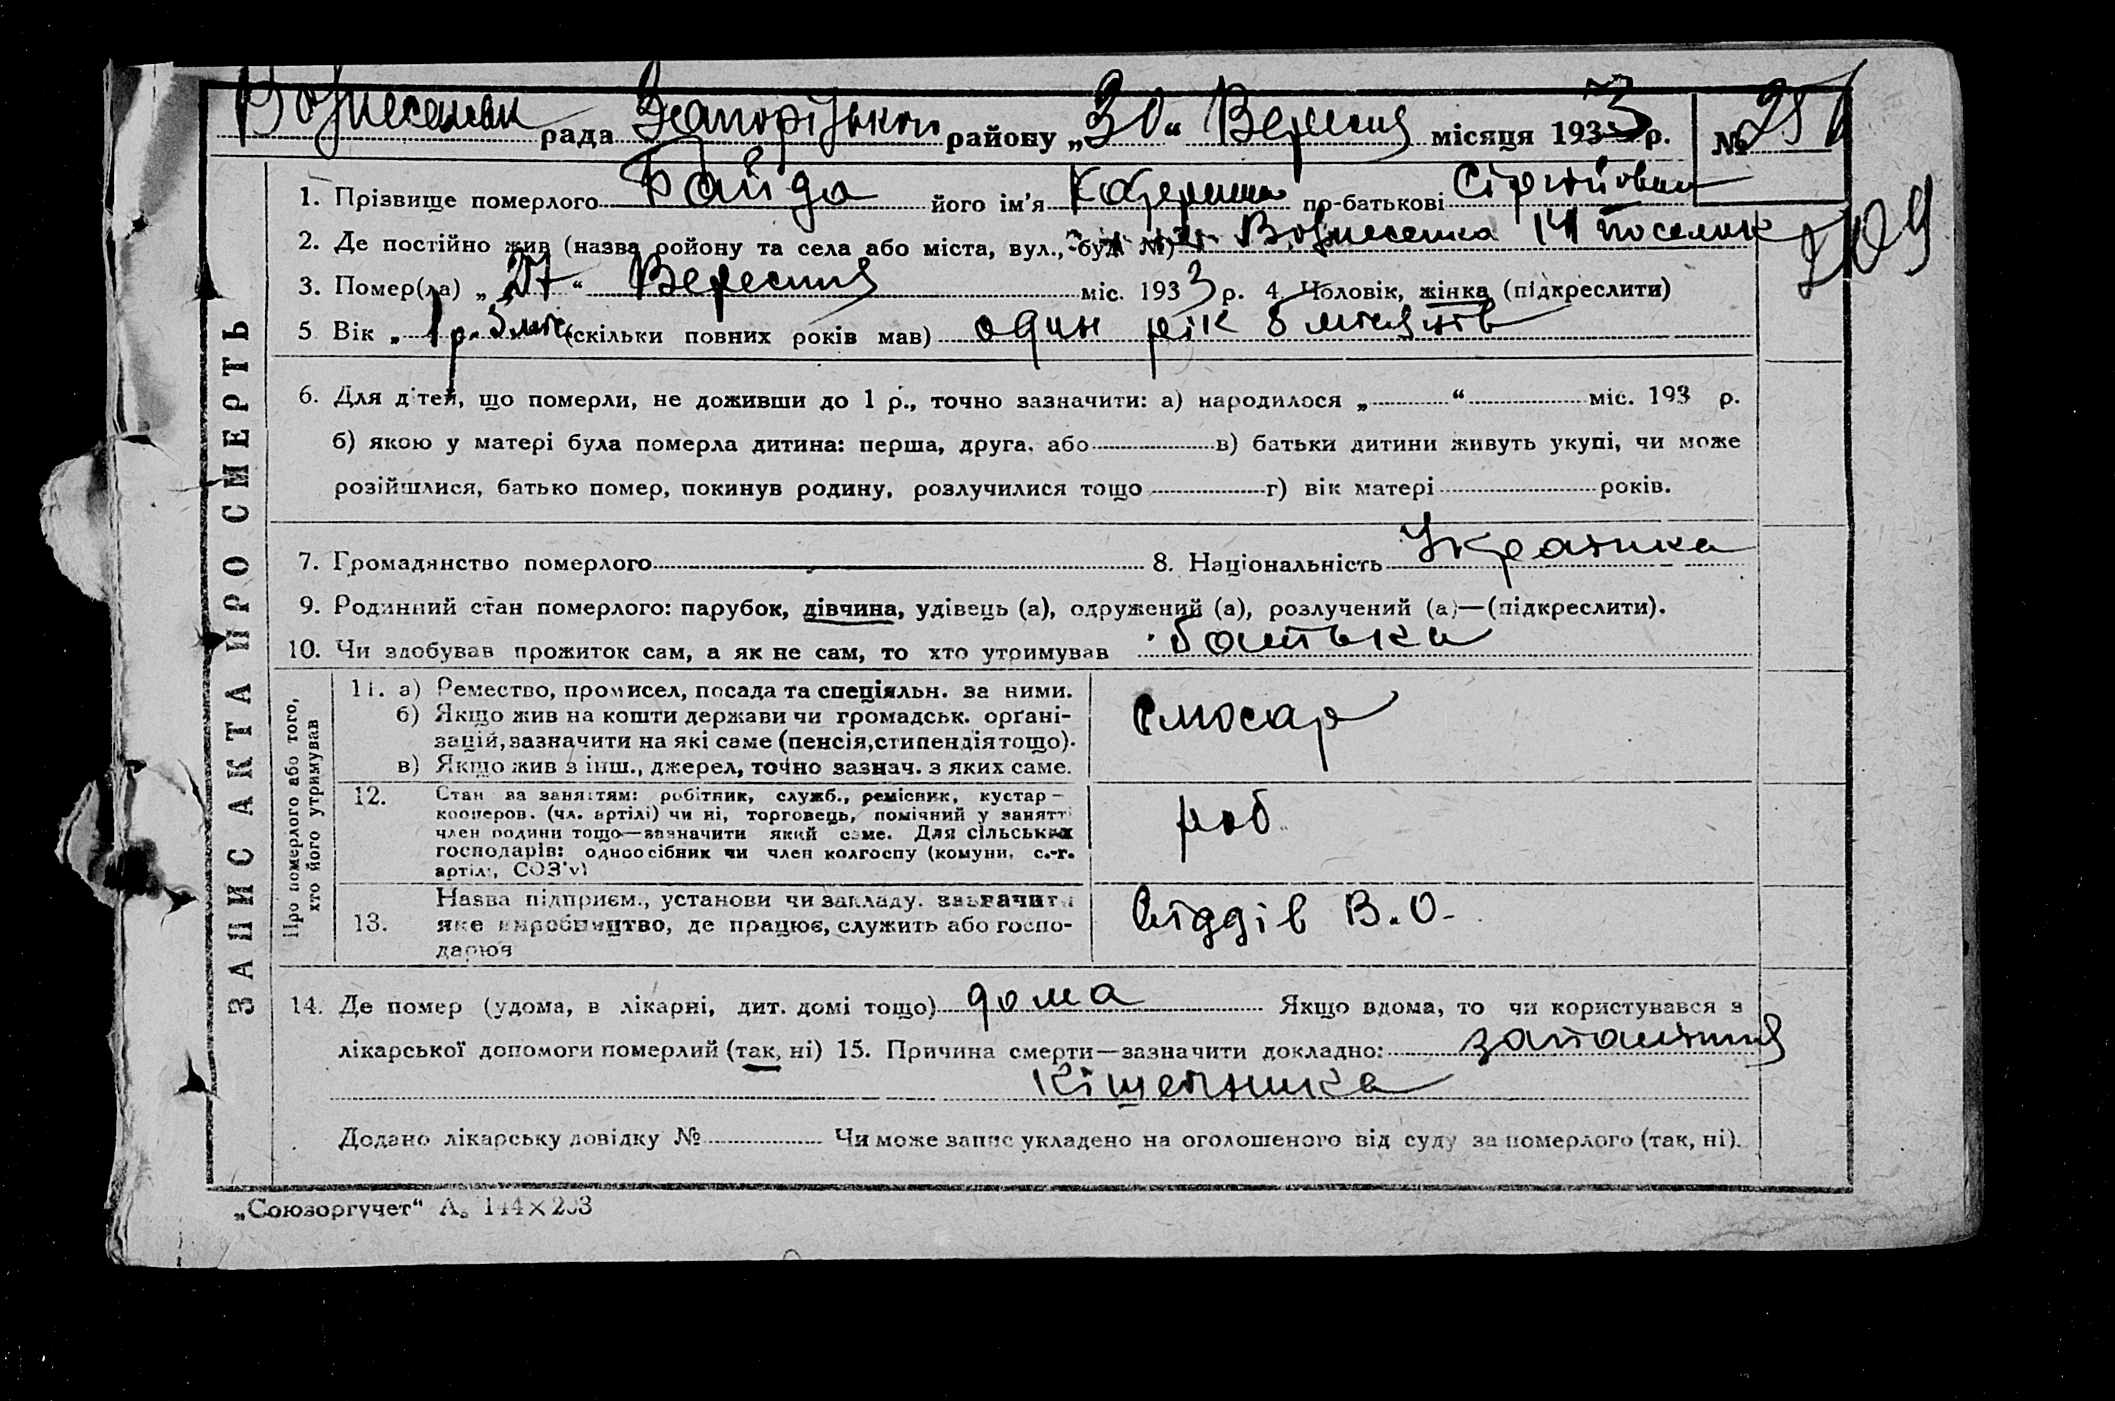 Вознесенськ рада Запорізькой району „30“ Вересня місяця 1933 р. №
1. Прізвище померлого Байда його ім'я Катерина по-батькові Сергійовна
209
2. Де постійно жив (назва ройону та села або міста, вул., буд. №) Вознесенка 14 поселок
3. Помер(ла) „27“ Вересня міс. 1933 р. 4. Чоловік, жінка (підкреслити)
5 Вік „1 р. 5 міс. (скільки повних років мав) один рік 5 місяців
6. Для дітей, що померли, не доживши до 1 р., точно зазначити: а) народилося „ “ міс. 193 р.
б) якою у матері була померла дитина: перша, друга, або в) батьки дитини живуть укупі, чи може
розійшлися, батько помер, покинув родину, розлучилися тощо г) вік матері років.
7. Громадянство померлого 8. Національність Українка
9. Родинний стан померлого: парубок, дівчина, удівець (а), одружений (а), розлучений (а)—(підкреслити).
10. Чи здобував прожиток сам, а як не сам, то хто утримував батько
ЗАПИС АКТА ПРО СМЕРТЬ
Про померлого або того,
хто його утримував
11. а) Ремество, промисел, посада та спеціяльн. за ними.
б) Якщо жив на кошти держави чи громадськ. орґані-
зацій, зазначити на які саме (пенсія, стипендія тощо).
в) Якщо жив з інш., джерел, точно зазнач. з яких саме.
Слюсар
12. Стан за заняттям: робітник, служб., ремісник, кустар—
кооперов. (чл. артілі) чи ні, торговець, помічний у занятті
член родини тощо—зазначити який саме. Для сільських
господарів: одноосібник чи член колгоспу (комуни, с.-г.
артілі, СОЗ'у)
роб
13. Назва підприєм., установи чи закладу. зазначити
яке виробництво, де працює, служить або госпо-
дарює
Відділ В. О.
14. Де помер (удома, в лікарні, дит. домі тощо) дома Якщо вдома, то чи користувався з
лікарської допомоги померлий (так, ні) 15. Причина смерти—зазначити докладно: запалення
кішечника
Додано лікарську довідку № Чи може запис укладено на оголошеного від суду за померлого (так, ні).
„Союзоргучет“ А₅ 144×203